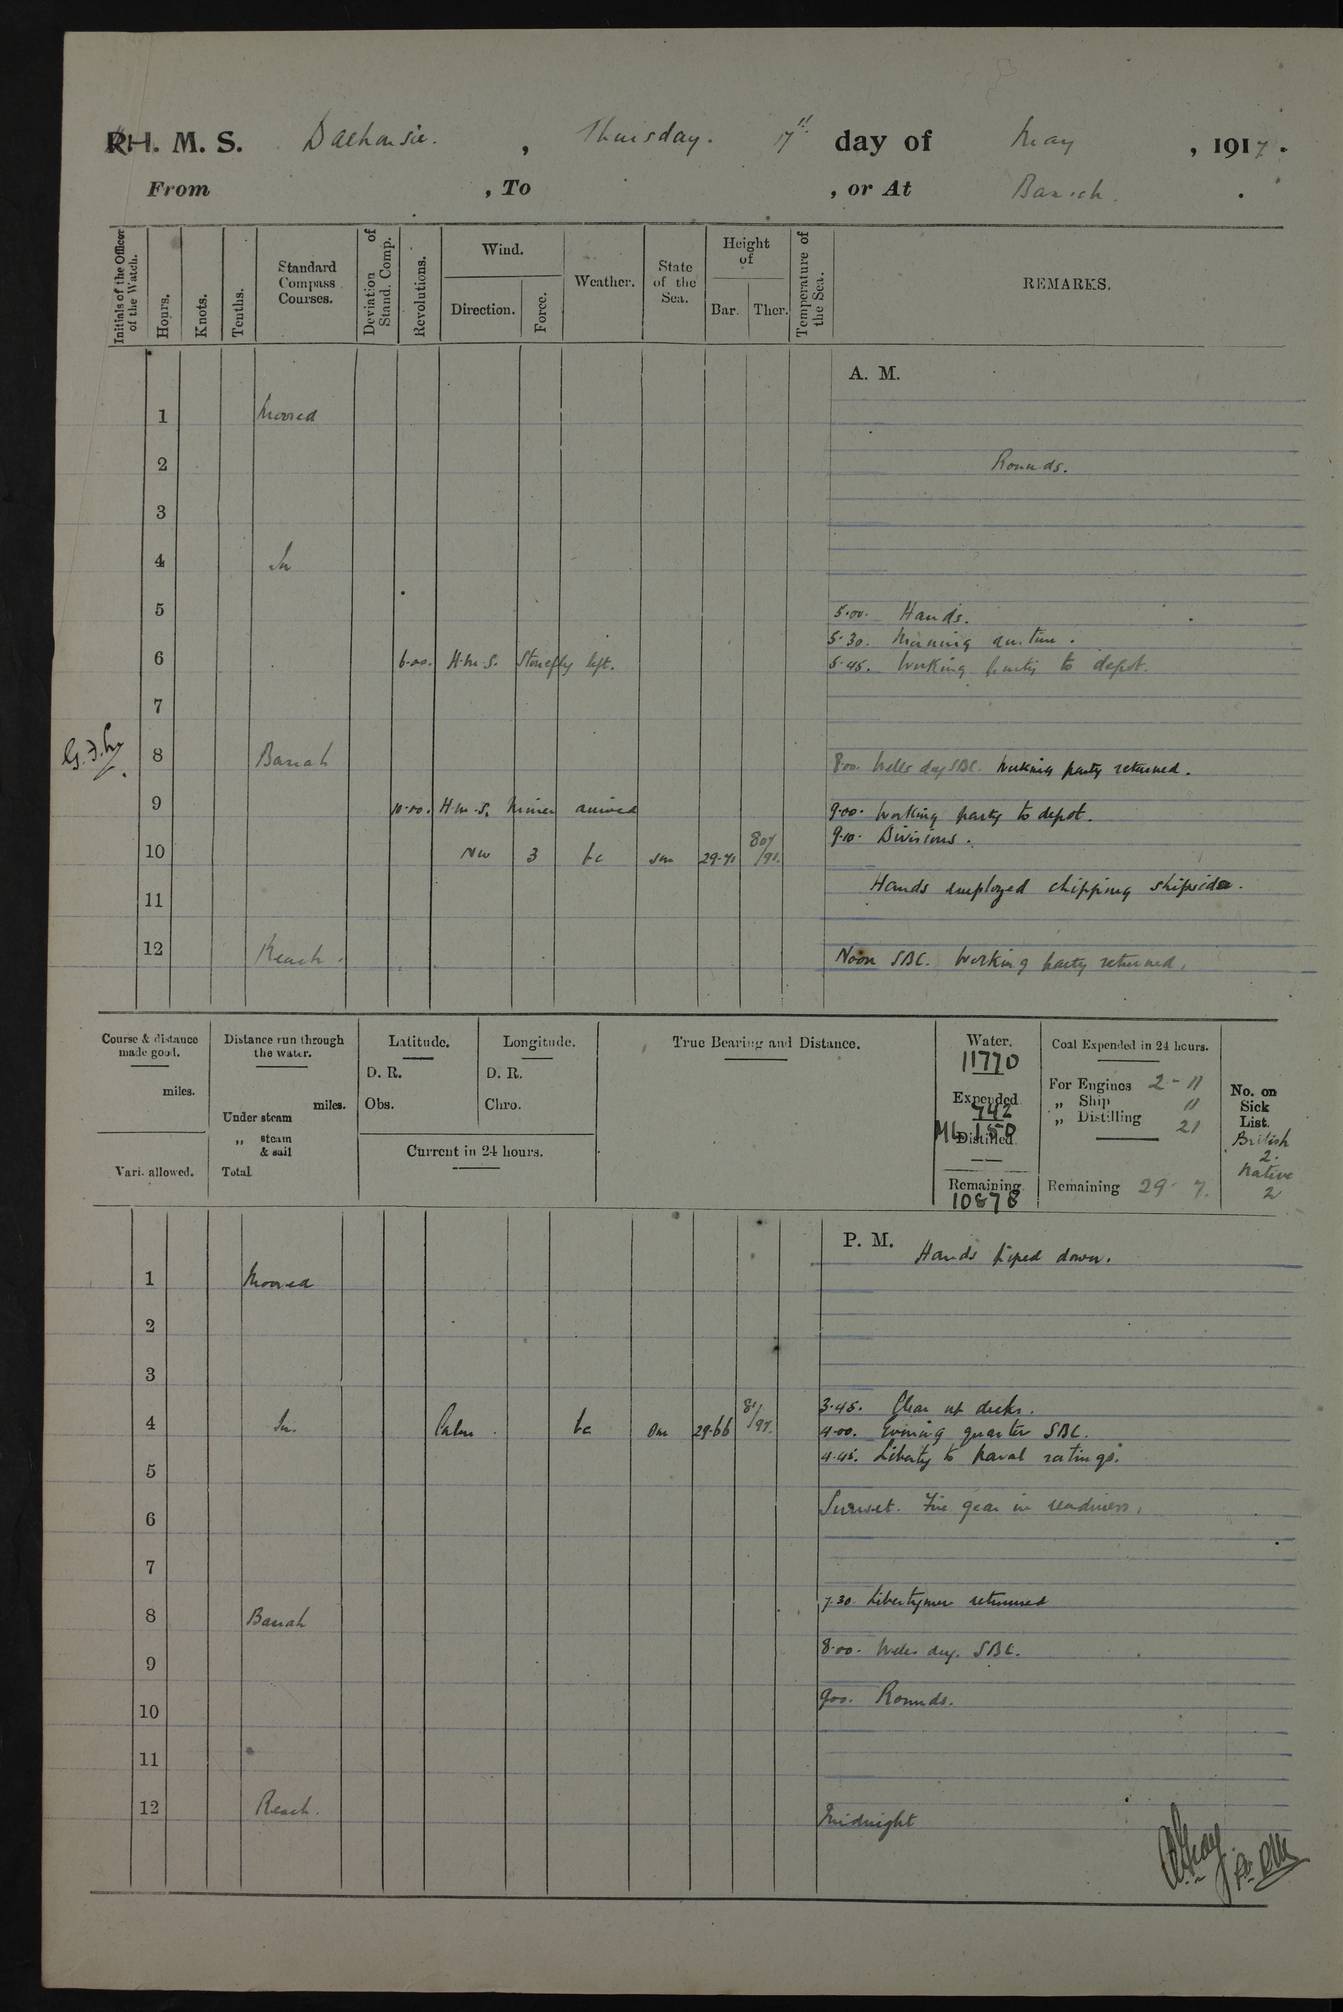 R.H. M. S. Dalhousie. , Thursday. 17th day of May , 1917.
From , To , or At Basrah.
Initials of the Officer of the Watch.
Hours.
Knots.
Tenths.
Standard Compass Courses.
Deviation of Stand. Comp.
Revolutions.
Wind.
Direction.
Force.
Weather.
State of the Sea.
Height of
Bar.
Ther.
Temperature of the Sea.
REMARKS.
A. M.
1 Moored
2 Rounds.
3
4 In
5 5.00. Hands.
5.30. Morning
6 6.00. H.M.S. Stonefly left. 5.45. Working party to depot.
7
8 Basrah 8.00. SBC. Working party returned.
9 10.00. H.M.S. Miner arrived 9.00. Working party to depot.
9.10. Divisions.
10 NW 3 bc sm 29.71 80/91.
Hands employed chipping shipside.
11
12 Reach. Noon SBC. Working party returned.
Course & distance made good.
miles.
Vari. allowed.
Distance run through the water.
miles.
Under steam
„ steam & sail
Total
Latitude.
D. R.
Obs.
Longitude.
D. R.
Chro.
Current in 24 hours.
True Bearing and Distance.
Water.
11770
Expended
742
ML 150
Distilled.
Remaining
10878
Coal Expended in 24 hours.
For Engines 2 - 11
„ Ship 11
„ Distilling 21
Remaining 29 - 7.
No. on Sick List.
British
2.
Native
2
P. M. Hands piped down.
1 Moored
2
3
3.45. Clear up decks.
4 In. Calm. bc sm 29.66 81/97. 4.00. Evening quarters SBC.
4.45. Liberty to Naval ratings.
5
Sunset. Fire gear in readiness.
6
7
7.30 Libertymen returned
8 Basrah
8.00. SBC.
9
9.00. Rounds.
10
11
12 Reach. Midnight